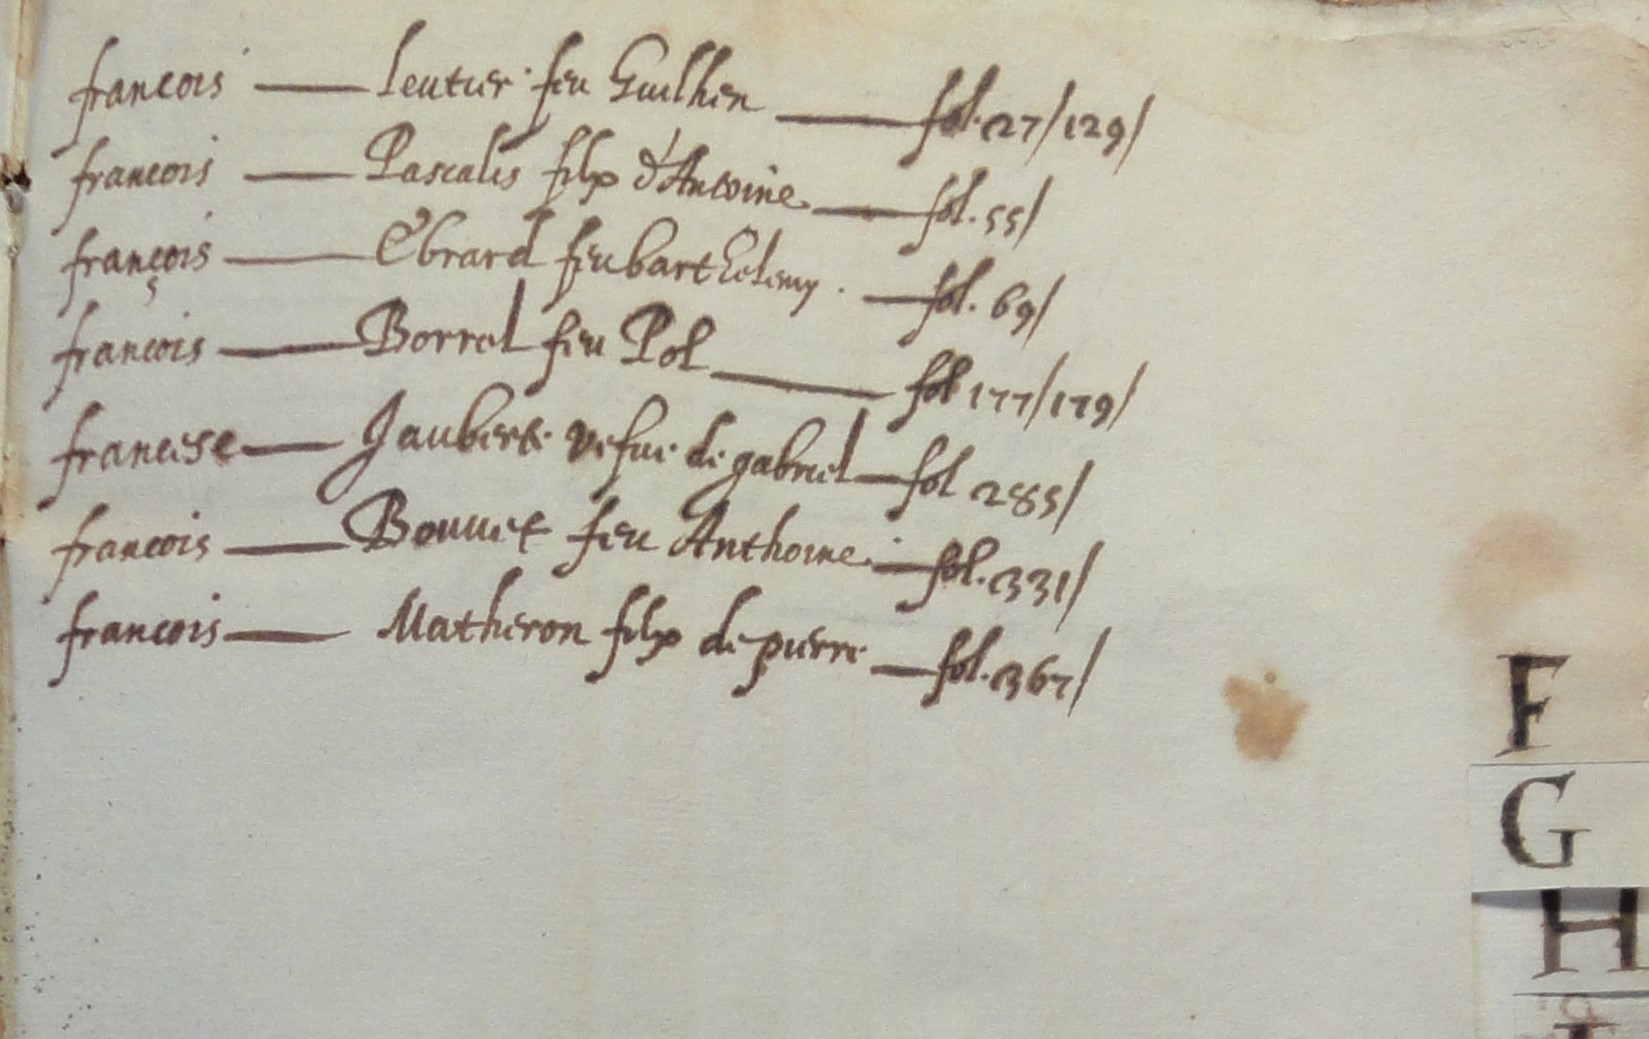 francois — leutier feu Guilhen — fol. 27/129/
francois — Pascalis filx d'Antoine — fol. 55/
françois — Ebrard feu barthelemy. — fol. 69/
francois — Borrel feu Pol — fol 177/179/
francise — Jauberte vefue de gabriel — fol 285/
francois — Bonnet feu Anthoine — fol. 331/
francois — Matheron filx de pierre — fol. 367/
F
G
H